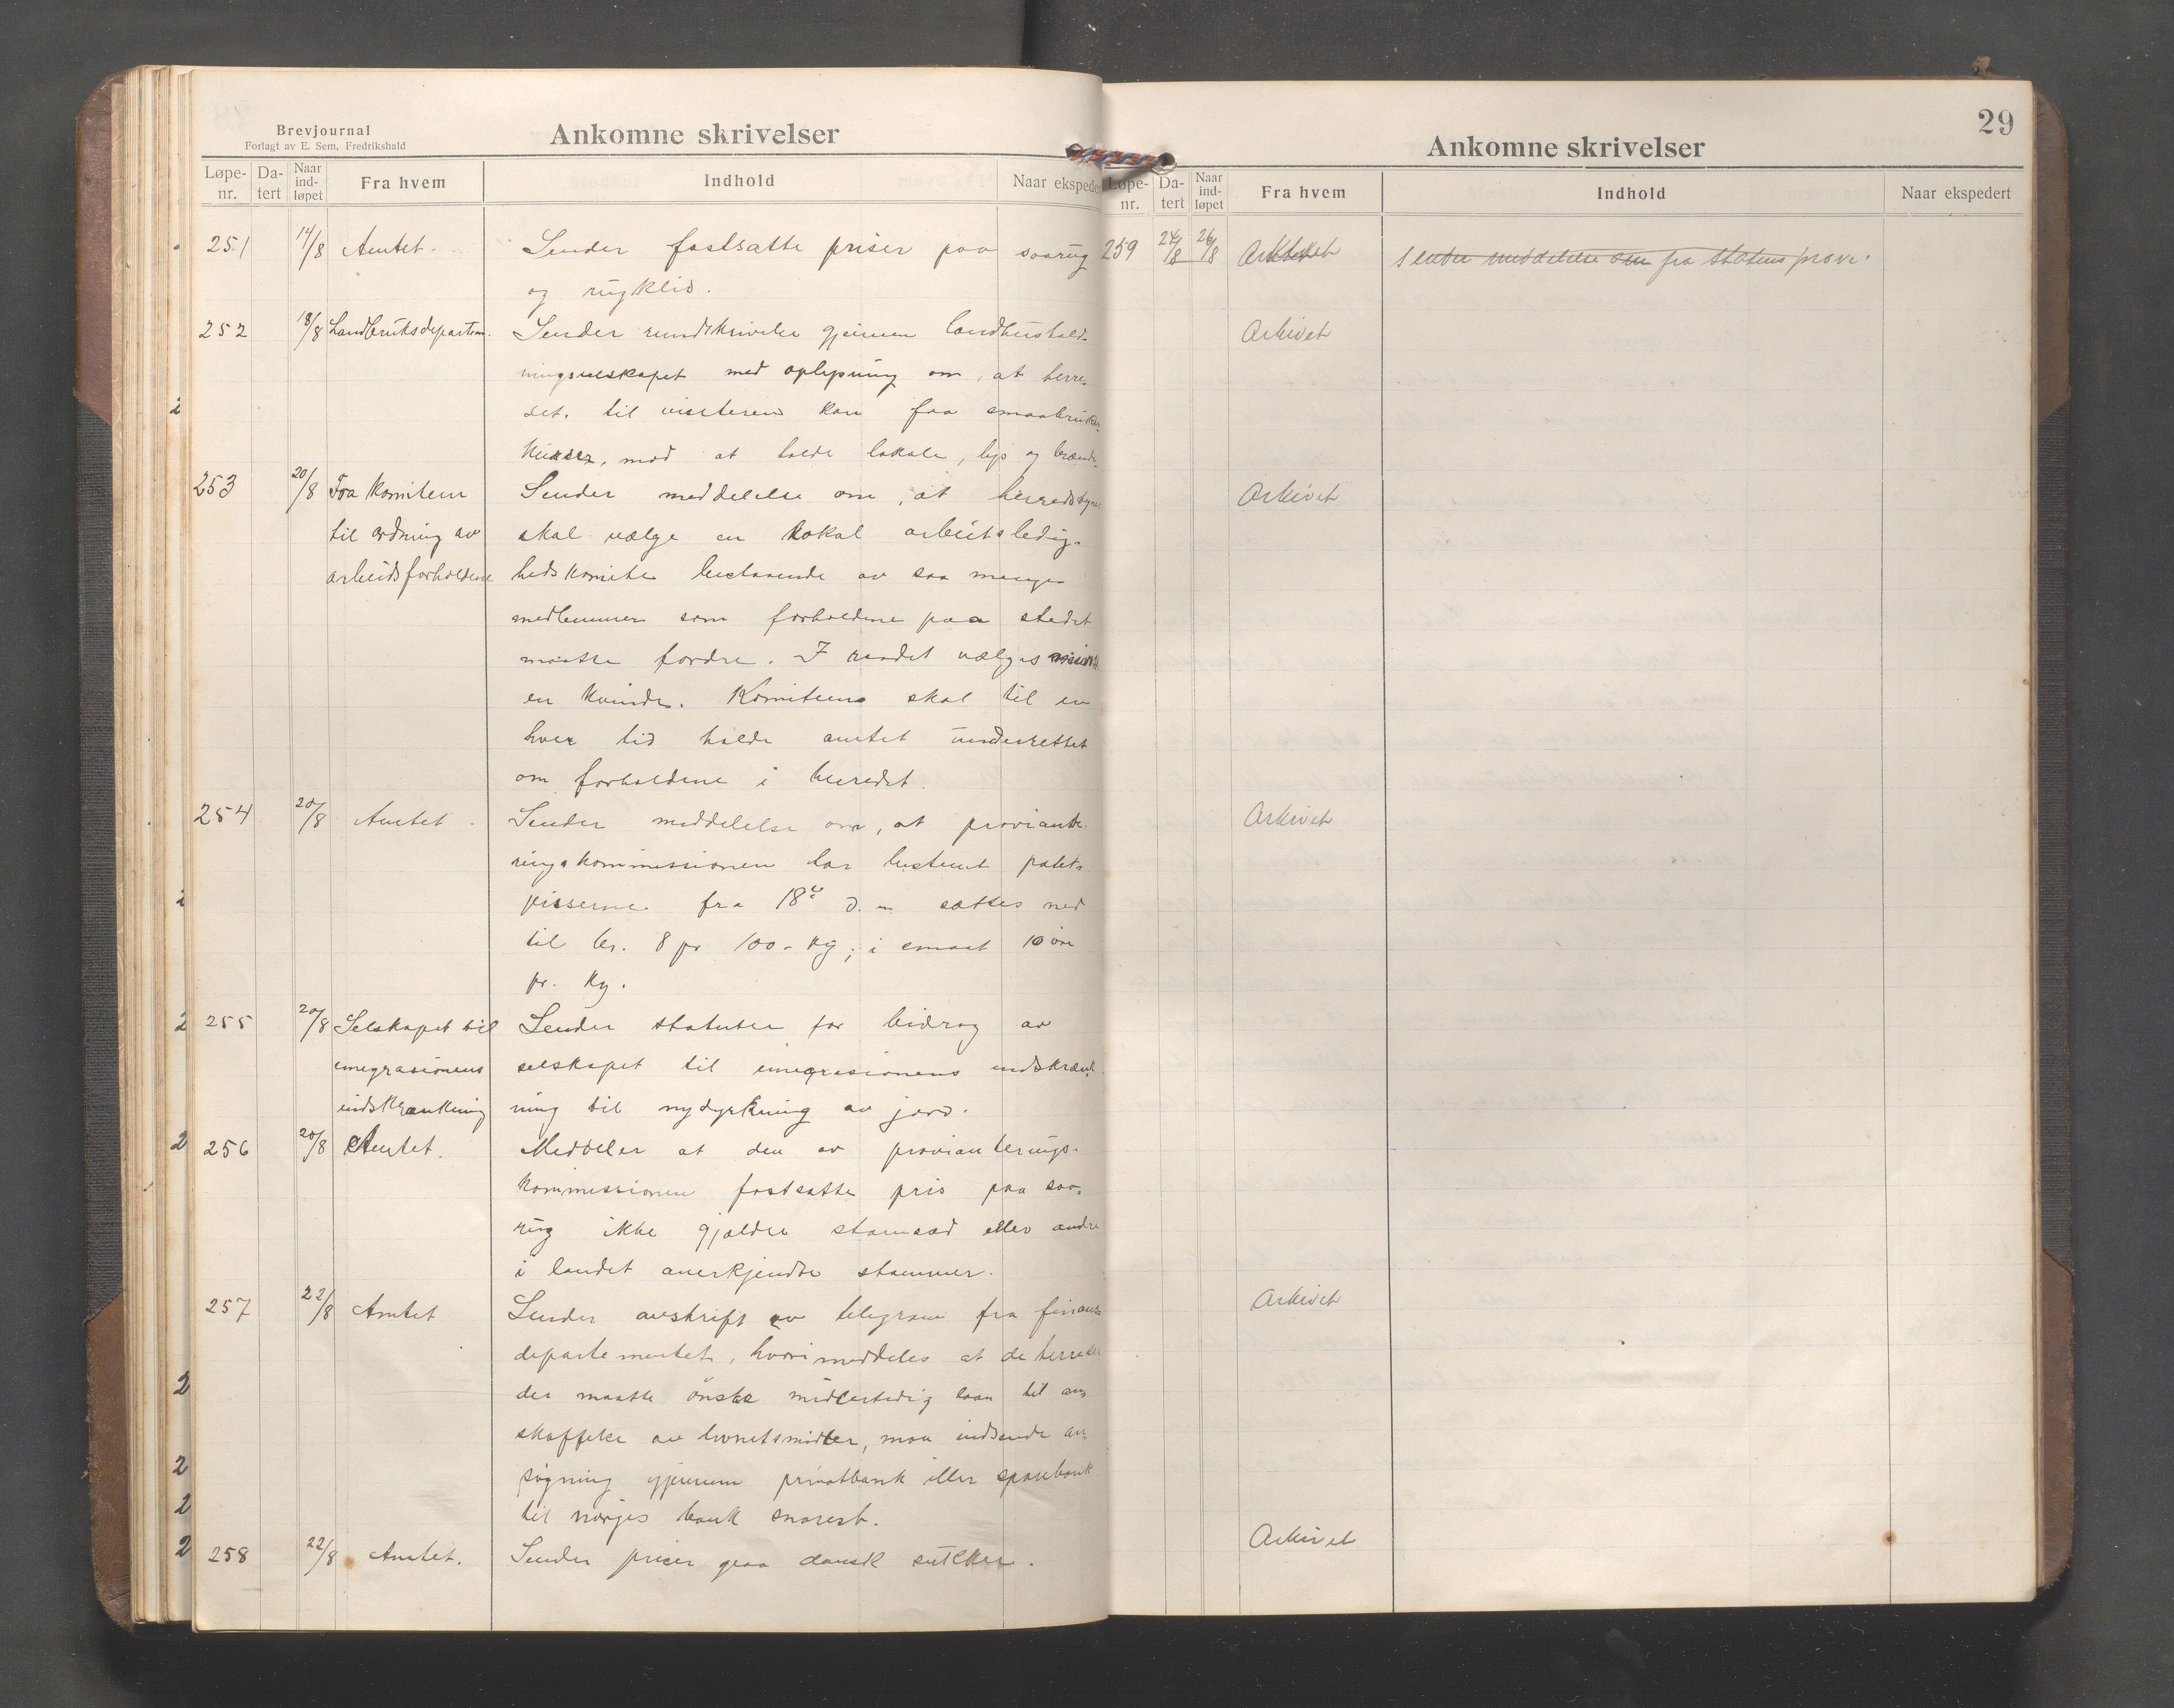 Brevjournal
Forlagt av E. Sem, Fredrikshald
Ankomne skrivelser
Løpe-nr. Da-tert Naar ind-løpet Fra hvem Indhold Naar ekspeder
251 14/8 Amtet. Sender fastsatte priser paa saarug
og rugklid.
252 18/8 Landbruksdepartem. Sender rundskrivelse gjennem landhushold-
ningsselskapet med oplysning om, at herre-
det til vinteren kan faa smaabruker-
kurser, mod at holde lokale, lys og brænde.
253 20/8 Fra komiteen Sender meddelelse om, at herredsstyre
til ordning av skal vælge en lokal arbeidsledig-
arbeidsforholdene hedskomite bestaaende av saa mange
medlemmer som forholdene paa stedet
maatte fordre. I raadet vælges mindst
en kvinde. Komiteens skal til en
hver tid holde amtet underrettet
om forholdene i herredet.
254 20/8 Amtet. Sender meddelelse om, at proviante-
ringskommissionen har bestemt potet-
priserne fra 18de d. m sættes ned
til kr. 8 pr 100 - kg; i smaat 10 øre
pr. kg.
255 20/8 Selskapet til Sender statuter for bidrag av
emegrasionens selskapet til emegrasionens indskrænk-
indskrænkning ning til nydyrkning av jord.
256 20/8 Amtet. Meddeler at den av provianterings-
kommissionen fastsatte pris paa saa-
rug ikke gjælder stamsæd eller andre
i landet anerkjendte stammer.
257 22/8 Amtet Sender avskrift av telegram fra finans
departementet, hvori meddeles at de herreder
der maatte ønske midlertidig laan til an-
skaffelse av livnetsmidler, maa indsende an-
søgning gjennem privatbank eller sparebank
til norges bank snarest.
258 22/8 Amtet. Sender priser paa dansk sukker.
29
Ankomne skrivelser
Løpe-nr. Da-tert Naar ind-løpet Fra hvem Indhold Naar ekspedert
259 24/8 26/8 Arkivet Sender meddelelse om fra statens prove.
Arkivet
Arkivet
Arkivet
Arkivet
Arkivet